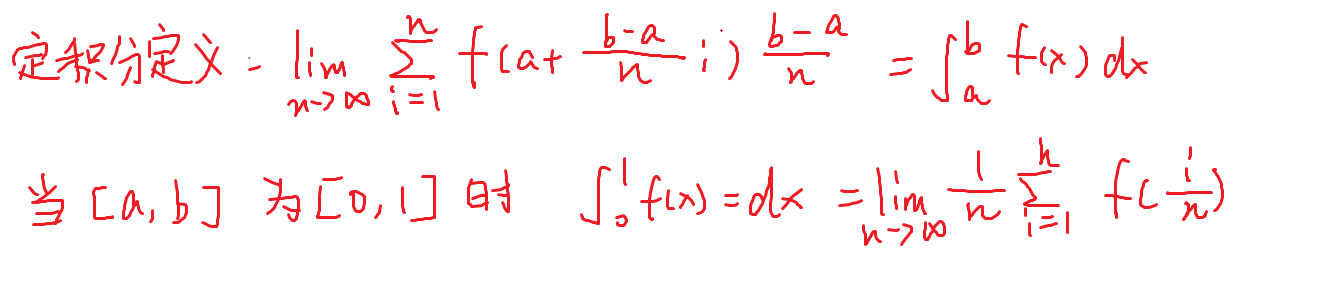 定积分定义 - lim_{n->∞} ∑_{i=1}^{n} f(a+ \frac{b-a}{n} i) \frac{b-a}{n} = ∫_{a}^{b} f(x) dx
当 [a,b] 为 [0,1] 时 ∫_{0}^{1} f(x) = dx = lim_{n->∞} \frac{1}{n} ∑_{i=1}^{n} f(\frac{i}{n})